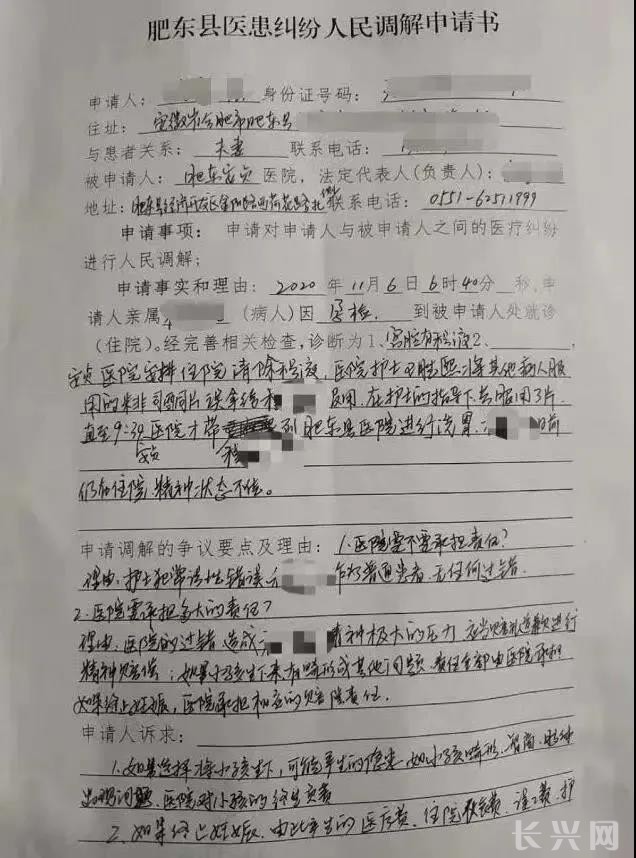 肥东县医患纠纷人民调解申请书
申请人： 身份证号码：
住址：安徽省合肥市肥东县
与患者关系：夫妻 联系电话：
被申请人：肥东安贞医院，法定代表人(负责人)：
地址：肥东县经济开发区金阳路与荷花路 联系电话：0551-62511999
申请事项：申请对申请人与被申请人之间的医疗纠纷
进行人民调解；
申请事实和理由：2020年11月6日6时40分 秒,申
请人亲属 (病人)因孕检 到被申请人处就诊
(住院)。经完善相关检查，诊断为1、宫腔有积液2、
安贞医院安排住院清除积液，医院护士 将其他病人服
用的米非司酮片误拿给 服用,在护士的指导下共服用3片
直至9:30医院才带 到肥东县医院进行洗胃, 目前
安贞
仍在住院,精神状态不佳。
申请调解的争议要点及理由：1.医院需不需承担责任？
理由:护士犯常识性错误 作为普通患者,无任何过错.
2.医院需承担多大的责任？
理由:医院的过错,造成 精神极大的压力,应当 进行
精神赔偿；如果小孩生下来有畸形或其他问题,责任全部由医院承担
如果终止妊娠,医院承担相应的赔偿责任.
申请人诉求：
1.如果选择将小孩生下,可能产生的隐患,如小孩畸形、智商、精神
出现问题,医院对小孩的终生负责
2、如果终止妊娠,由此产生的医疗费、住院 费、误工费、护
长兴网